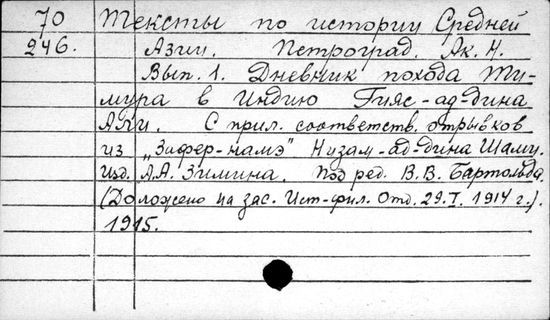 70 Тексты по истории Средней
246. Азии. Петроград. Ак. Н.
Вып. 1. Дневник похода Ти-
мура в Индию Гияс-ад-дина
Али. С прил. соответств. отрывков
из „Зафер-намэ" Низам-ад-дина Шами.
Изд. А.А. Зимина. Под ред. В.В. Бартольда.
(Доложено на зас. Ист-фил. Отд. 29.I. 1914 г.).
1915.